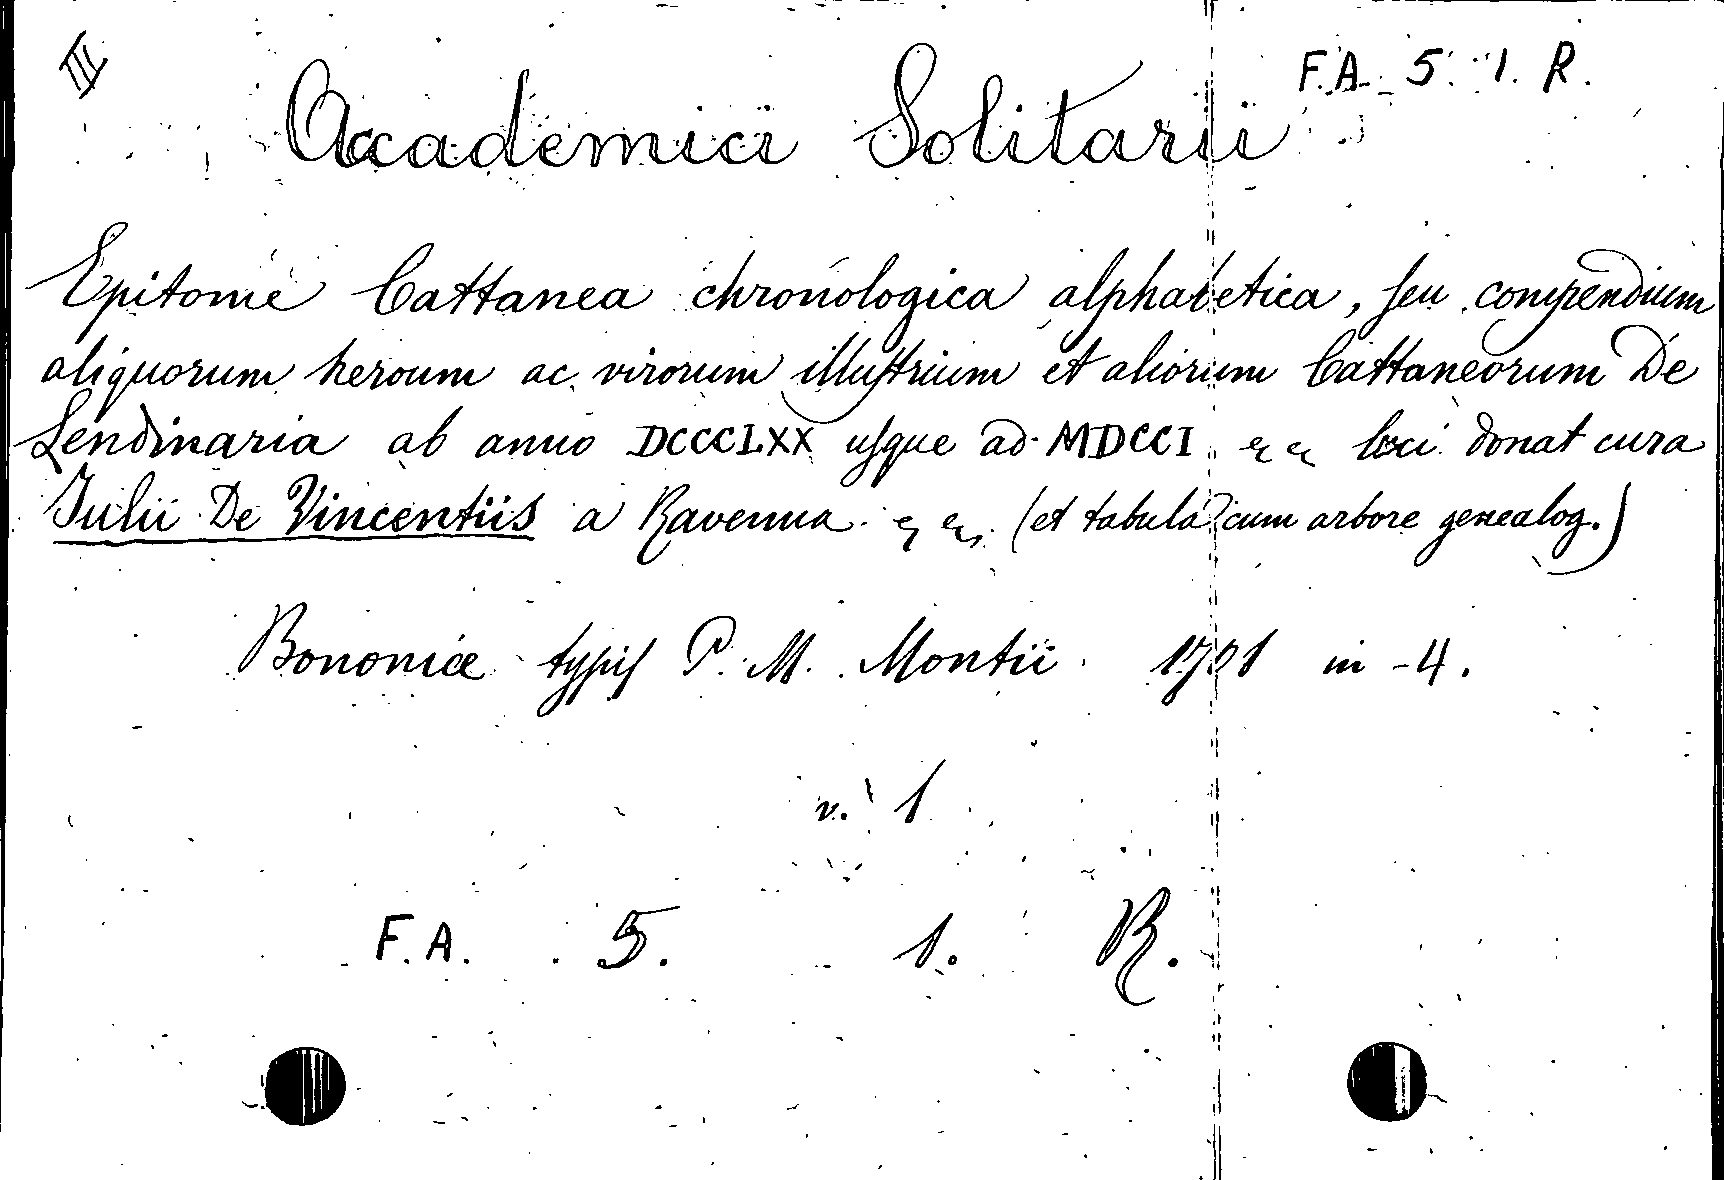 III
F.A. 5. 1. R.
Academici Solitarii
Epitome Cattanea chronologica alphabetica, seu compendium
aliquorum heroum ac virorum illustrium et aliorum Cattaneorum De
Lendinaria ab anno DCCCLXX usque ad MDCCI luci donat cura
Iulii De Vincentiis a Ravenna (et tabula cum arbore genealog.)
Bononiæ typis P. M. Montii 1701 in-4.
v. 1
F.A. 5. 1. R.